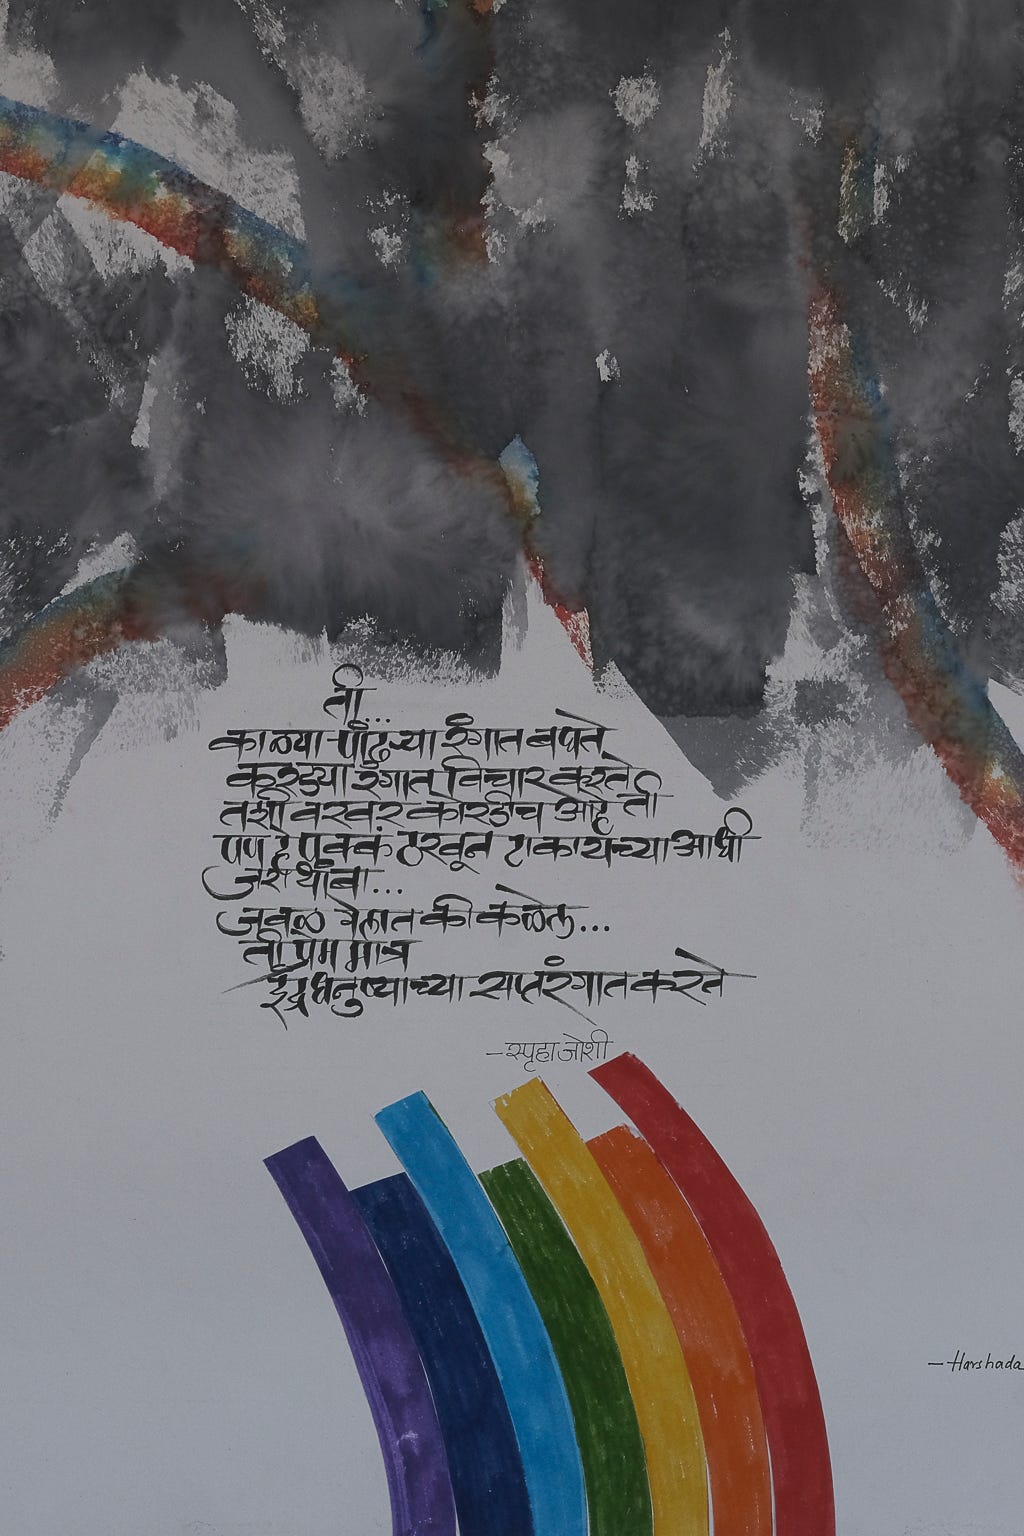 ती...
काळ्या-पांढऱ्या रंगात बघते,
करड्या रंगात विचार करते,
तशी वरवर कोरडीच आहे ती
पण हे पक्कं ठरवून टाकायच्या आधी
जरा थांबा...
जवळ गेलात की कळेल...
ती प्रेम मात्र
इंद्रधनुष्याच्या सप्तरंगात करते
-स्पृहा जोशी
- Harshada